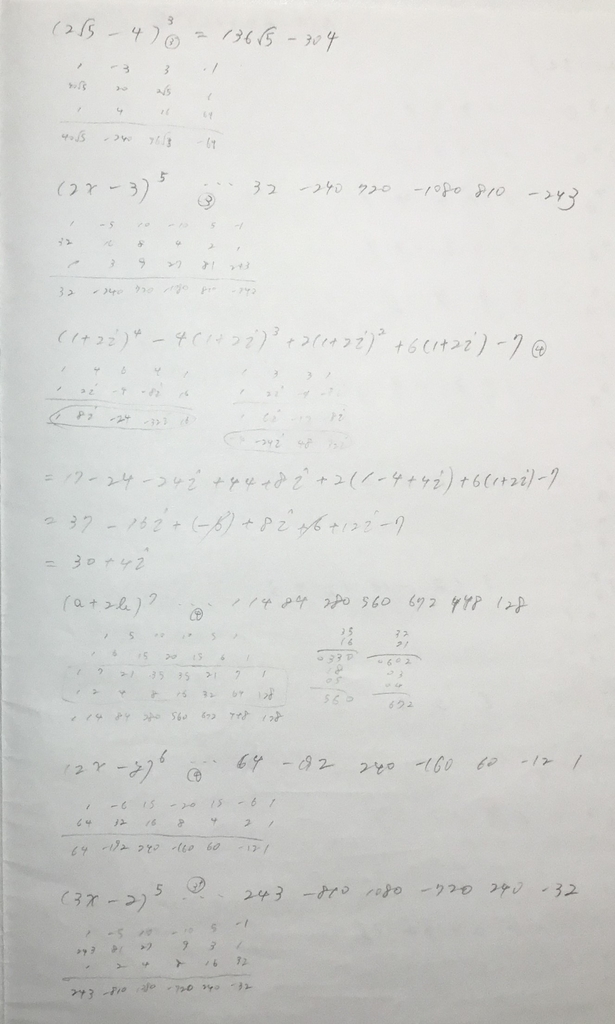 (2√5 - 4)³ ① = 136√5 - 304
1 -3 3 -1
40√5 -240 -64
(2x - 3)⁵ ③ ... 32 -240 720 -1080 810 -243
1 -5 10 -10 5 -1
32 16 8 4 2 1
1 3 9 27 81 243
32 -240 720 -1080 810 -243
(1+2i)⁴ - 4(1+2i)³ + 2(1+2i)² + 6(1+2i) - 7 ④
1 4 6 4 1 1 3 3 1
1 2i -4 -8i 16 1 2i
1 8i -24 -32i 16 1 6i 8i
= 17 - 24 - 24i + 44 + 8i + 2(1 - 4 + 4i) + 6(1+2i) - 7
= 37 - 16i + (-6) + 8i + 6 + 12i - 7
= 30 + 4i
(a + 2b)⁷ ... 1 14 84 280 560 672 448 128
1 5 10 10 5 1 35 32
1 6 15 20 15 6 1 16 21
1 7 21 35 35 21 7 1
1 2 4 8 16 32 64 128 560 672
1 14 84 280 560 672 448 128
64 -192 240 -160 60 -12 1
1 -6 15 -20 15 -6 1
64 32 16 8 4 2 1
64 -192 240 -160 60 -12 1
(3x - 2)⁵ ... 243 -810 1080 -720 240 -32
1 -5 10 -10 5 -1
243 81 27 9 3 1
1 2 4 8 16 32
243 -810 1080 -720 240 -32